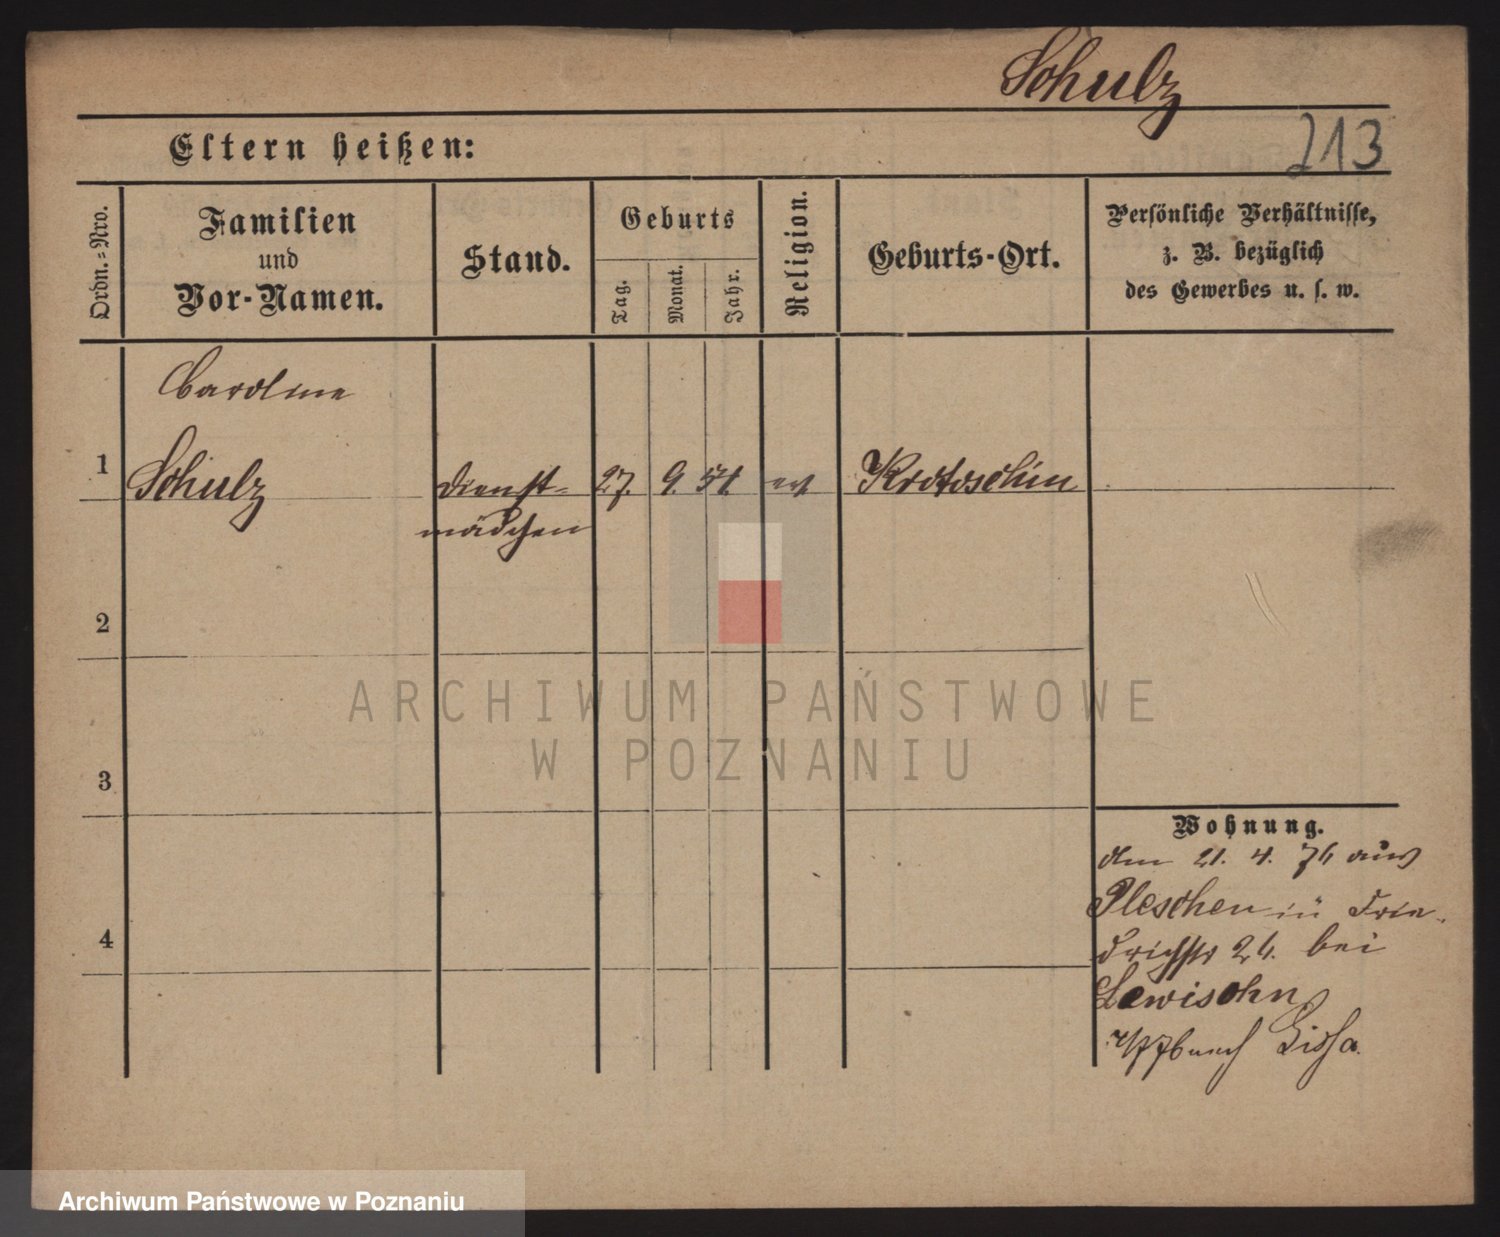 Schulz
Eltern heißen:
213
Ordn.=Nro.
Familien
und
Vor-Namen.
Stand.
Geburts
Tag.
Monat.
Jahr.
Religion.
Geburts-Ort.
Persönliche Verhältnisse,
z. B. bezüglich
des Gewerbes u. s. w.
Caroline
1
Schulz
Dienst=
mädchen
27.
9.
54.
ev
Krotoschin
2
3
4
Wohnung.
den 21. 4. 76 aus
Pleschen in Frie-
drichstr 24. bei
Lewisohn
76 nach Lissa.
ARCHIWUM PAŃSTWOWE
W POZNANIU
Archiwum Państwowe w Poznaniu